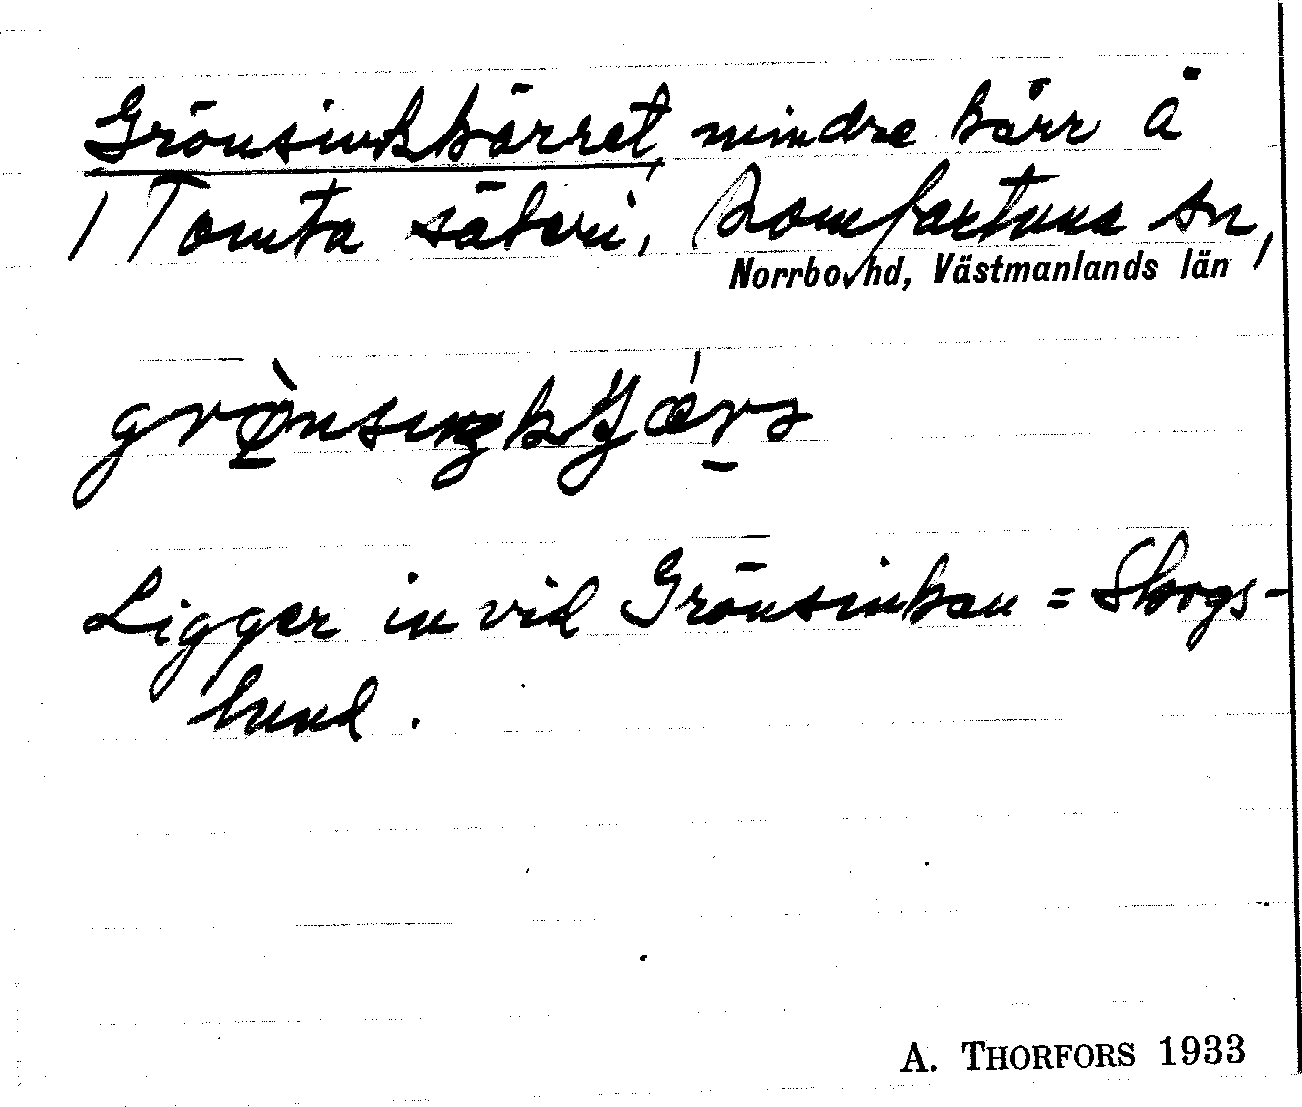 Grönsinkkärret, mindre kärr å
/ Tomta säteri, Romfartuna sn,
Norrbo hd, Västmanlands län
grø̀nsıŋkʃǽrə
Ligger in vid Grönsinkan = Skogs-
lund.
A. THORFORS 1933